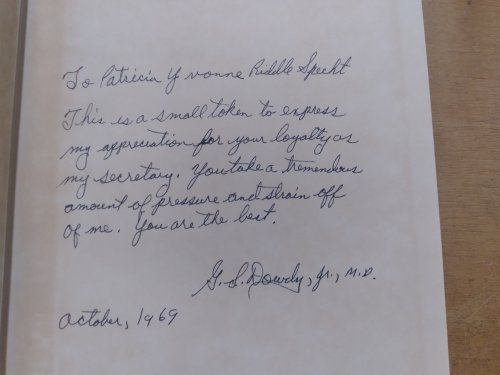 To Patricia Yvonne Riddle Specht
This is a small token to express
my appreciation for your loyalty as
my secretary. You take a tremendous
amount of pressure and strain off
of me. You are the best.
G. S. Dowdy, Jr., M.D.
October, 1969